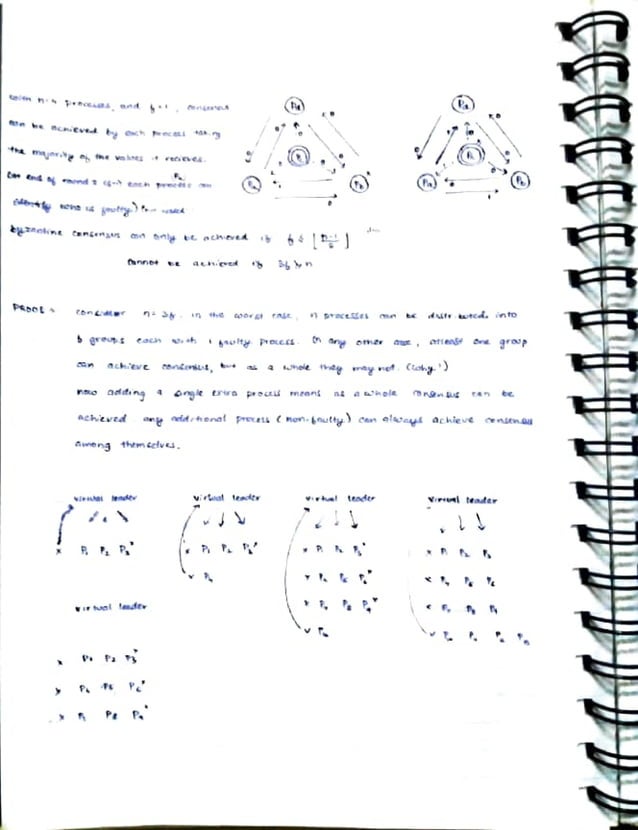 with n=4 processes, and f=1, consensus
can be achieved by each process taking
the majority of the values it recieves.
(at end of round 2 each process can
identify who is faulty)
Byzantine consensus can only be achieved if f ≤ [n-1/3]
cannot be achieved if 3f ≥ n
PROOF: consider n=3f. in the worst case, n processes can be distributed into
f groups each with 1 faulty process. In any other case, atleast one group
can achieve consensus, but as a whole they may not. (why?)
now adding a single extra process means as a whole consensus can be
achieved. any additional process (non-faulty) can always achieve consensus
among themselves.
virtual leader virtual leader virtual leader virtual leader
x P1 P2 P3* x P1 P2 P3* x P1 P2 P3* x P1 P2 P3
v P4 P5 P6
P7 P8 P9*
virtual leader
x P1 P2 P3*
P4 P5 P6*
x P7 P8 P9*